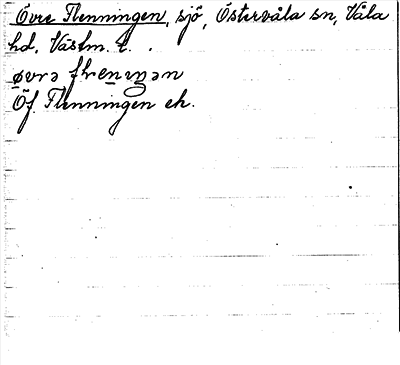 Övre Flenningen, sjö, Östervåla sn, Våla
hd, Västm. l.
Öf. Flenningen ek.